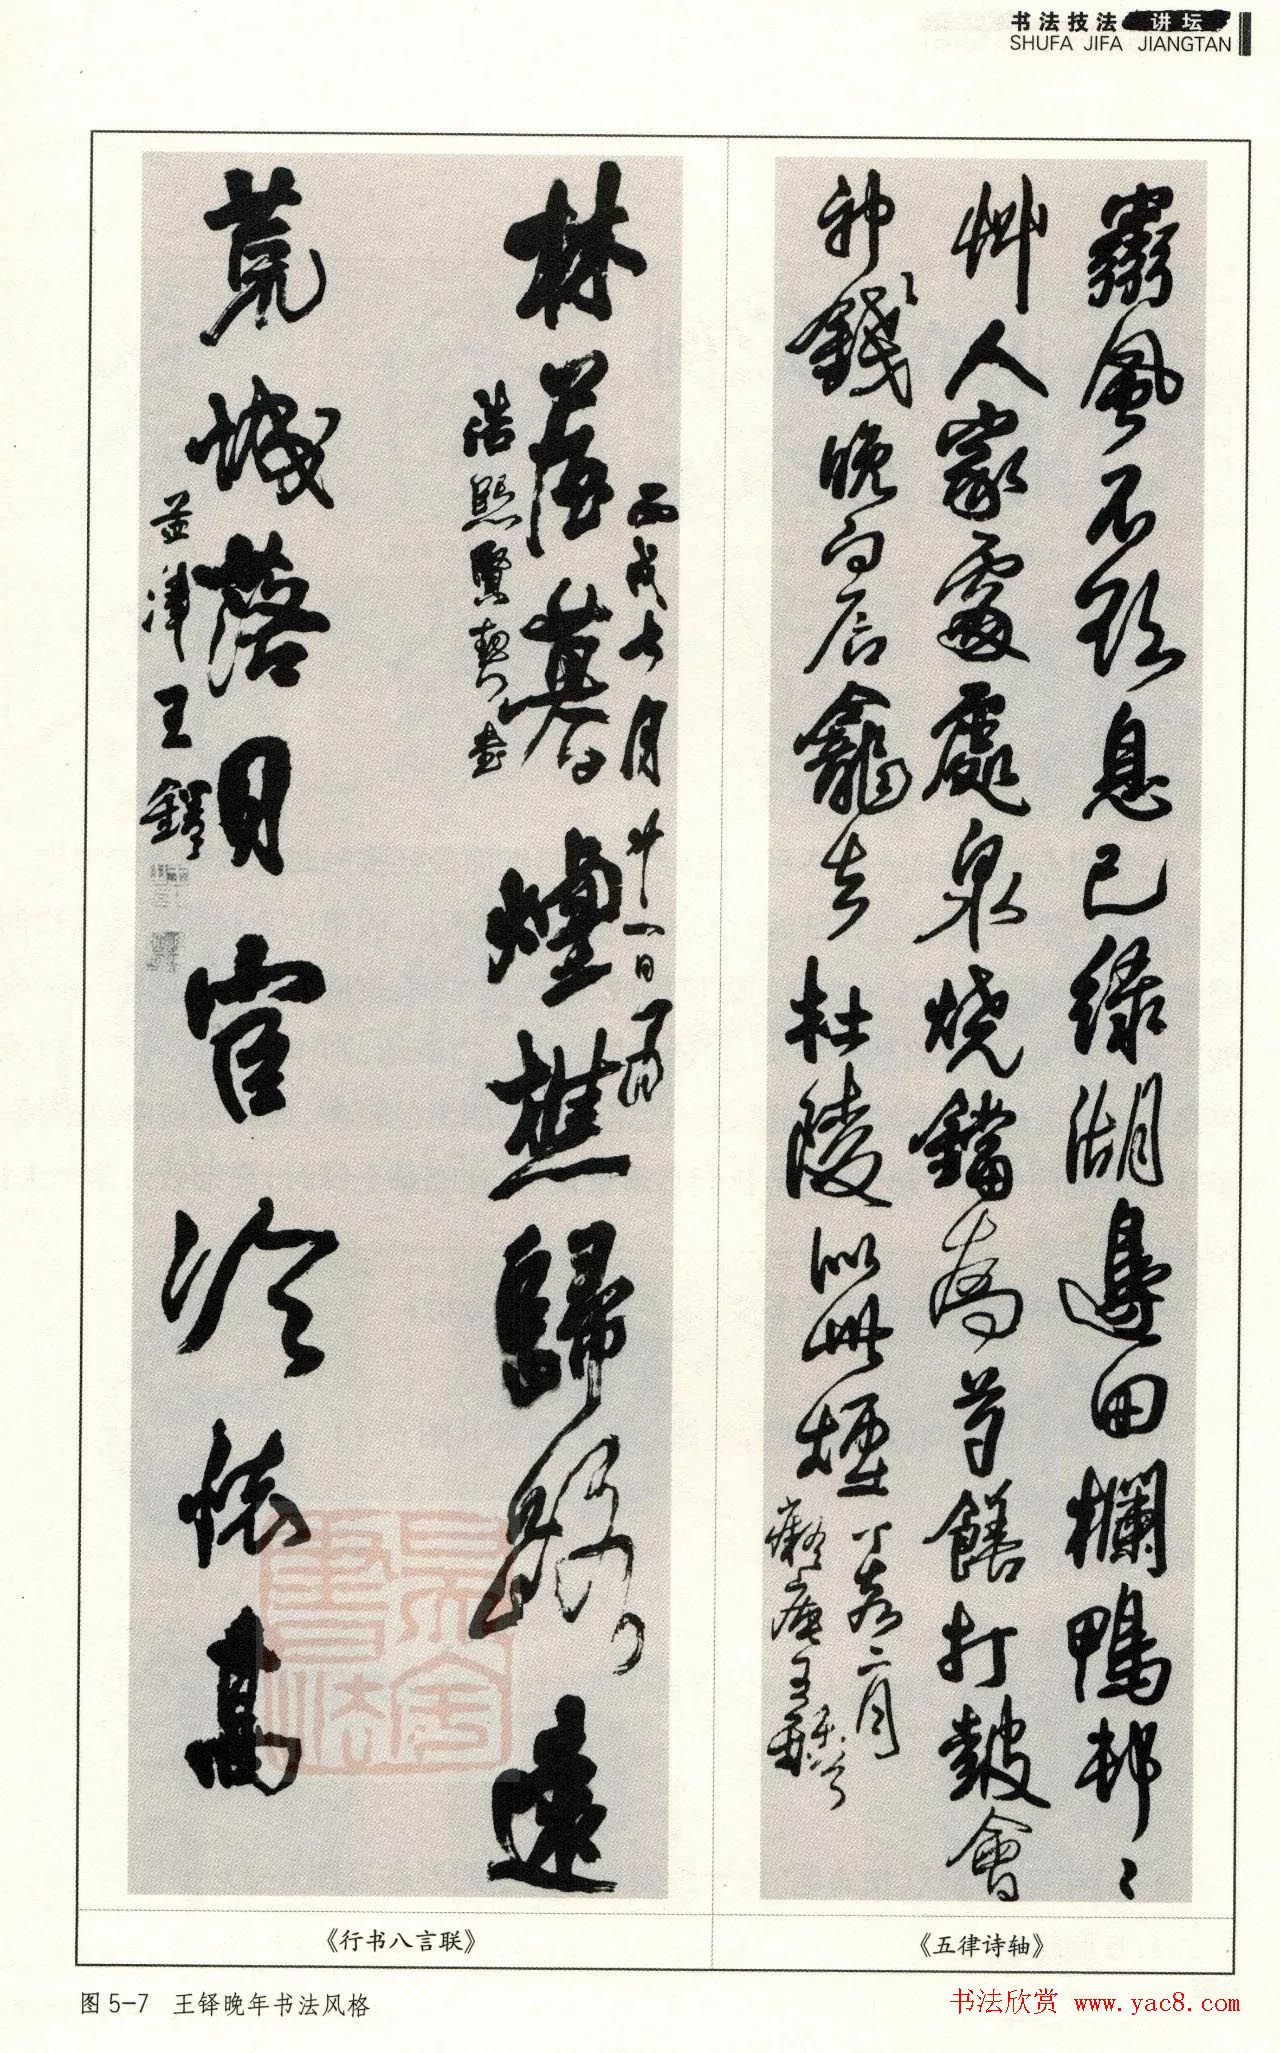 书法技法 讲坛
SHUFA JIFA JIANGTAN
風不欲息已綠湖邊田欄鴨邨〻
艸人家處處泉燒鐺饍打皷會
神錢晚向龕去杜陵似此煙
丁亥二月
癡庵王鐸
丙戌七月廿一日
林薄暮煙樵歸路遠
賢契
荒城落月官冷懷高
孟津王鐸
《行书八言联》
《五律诗轴》
图 5-7 王铎晚年书法风格
书法欣赏 www.yac8.com